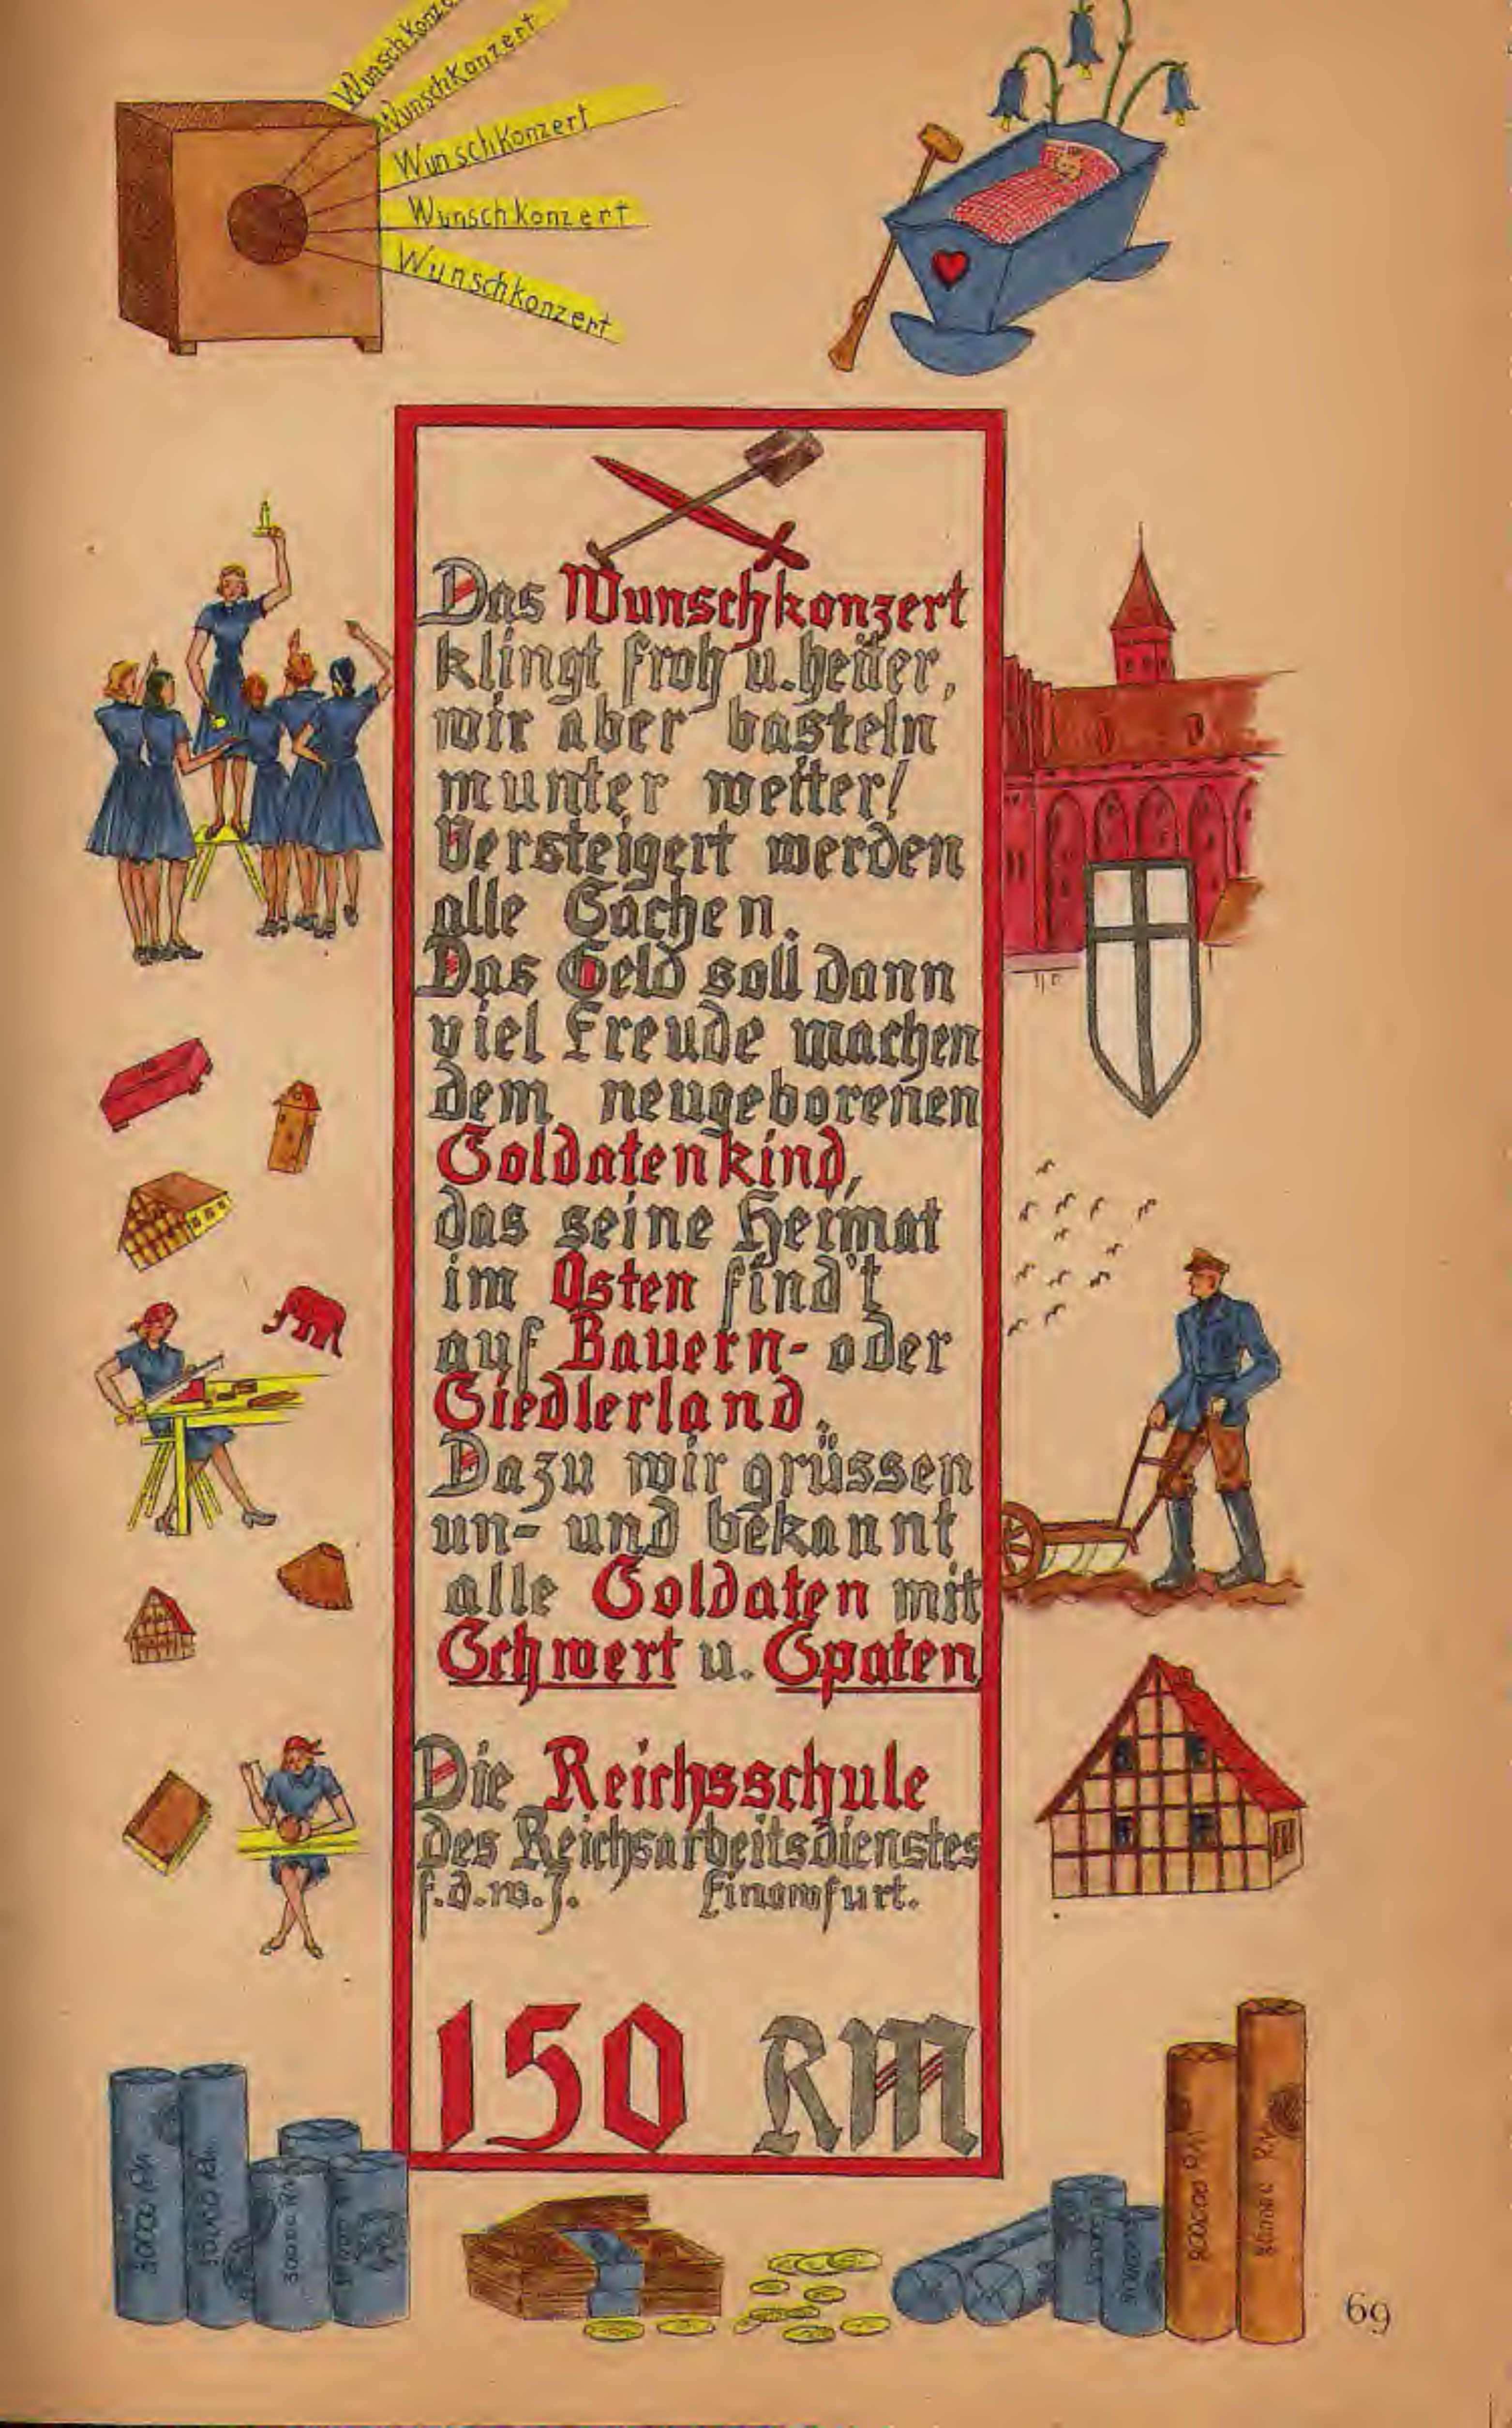 Wunschkonze
Wunschkonzert
Wunschkonzert
Wunschkonzert
Wunschkonzert
Das Wunschkonzert
klingt froh u. heiter,
wir aber basteln
munter weiter!
Versteigert werden
alle Sachen.
Das Geld soll dann
viel Freude machen
dem neugeborenen
Soldatenkind,
das seine Heimat
im Osten find't
auf Bauern- oder
Siedlerland.
Dazu wir grüssen
un- und bekannt
alle Soldaten mit
Schwert u. Spaten
Die Reichsschule
des Reichsarbeitsdienstes
f.d.w.J. Finowfurt.
150 RM
30000 RM
30000 RM
30000 RM
69